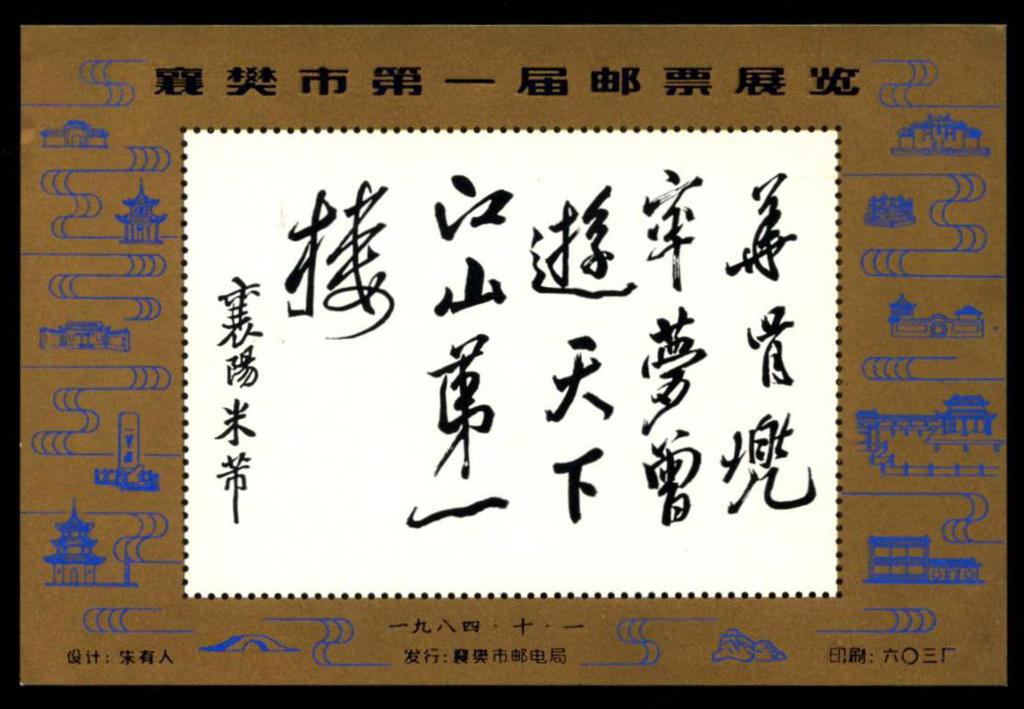 襄樊市第一届邮票展览
華胥兜
率夢曾
遊天下
江山第一
樓
襄陽米芾
一九八四·十·一
设计:朱有人
发行:襄樊市邮电局
印刷:六〇三厂